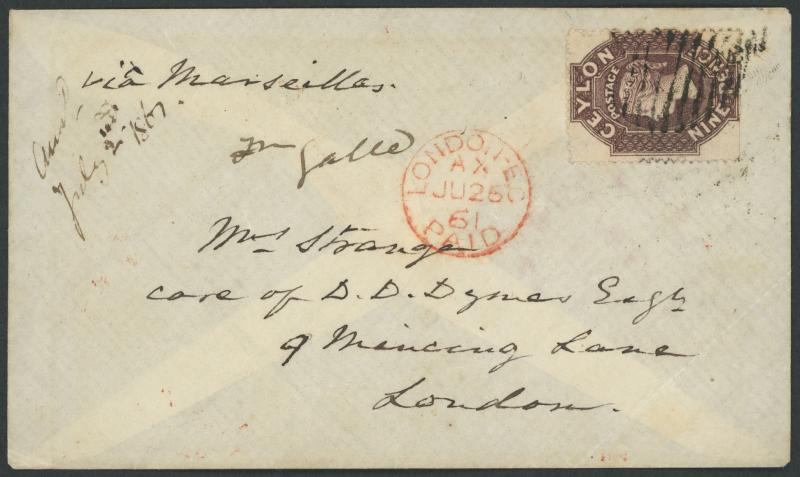 via Marseilles.
CEYLON
POSTAGE
NINE PENCE
Ansd
July 2nd 1861.
Galle
LONDON-EC
AX
JU 26
61
PAID
Mrs Strange
care of D. D. Dymes Esqre
9 Mincing Lane
London.